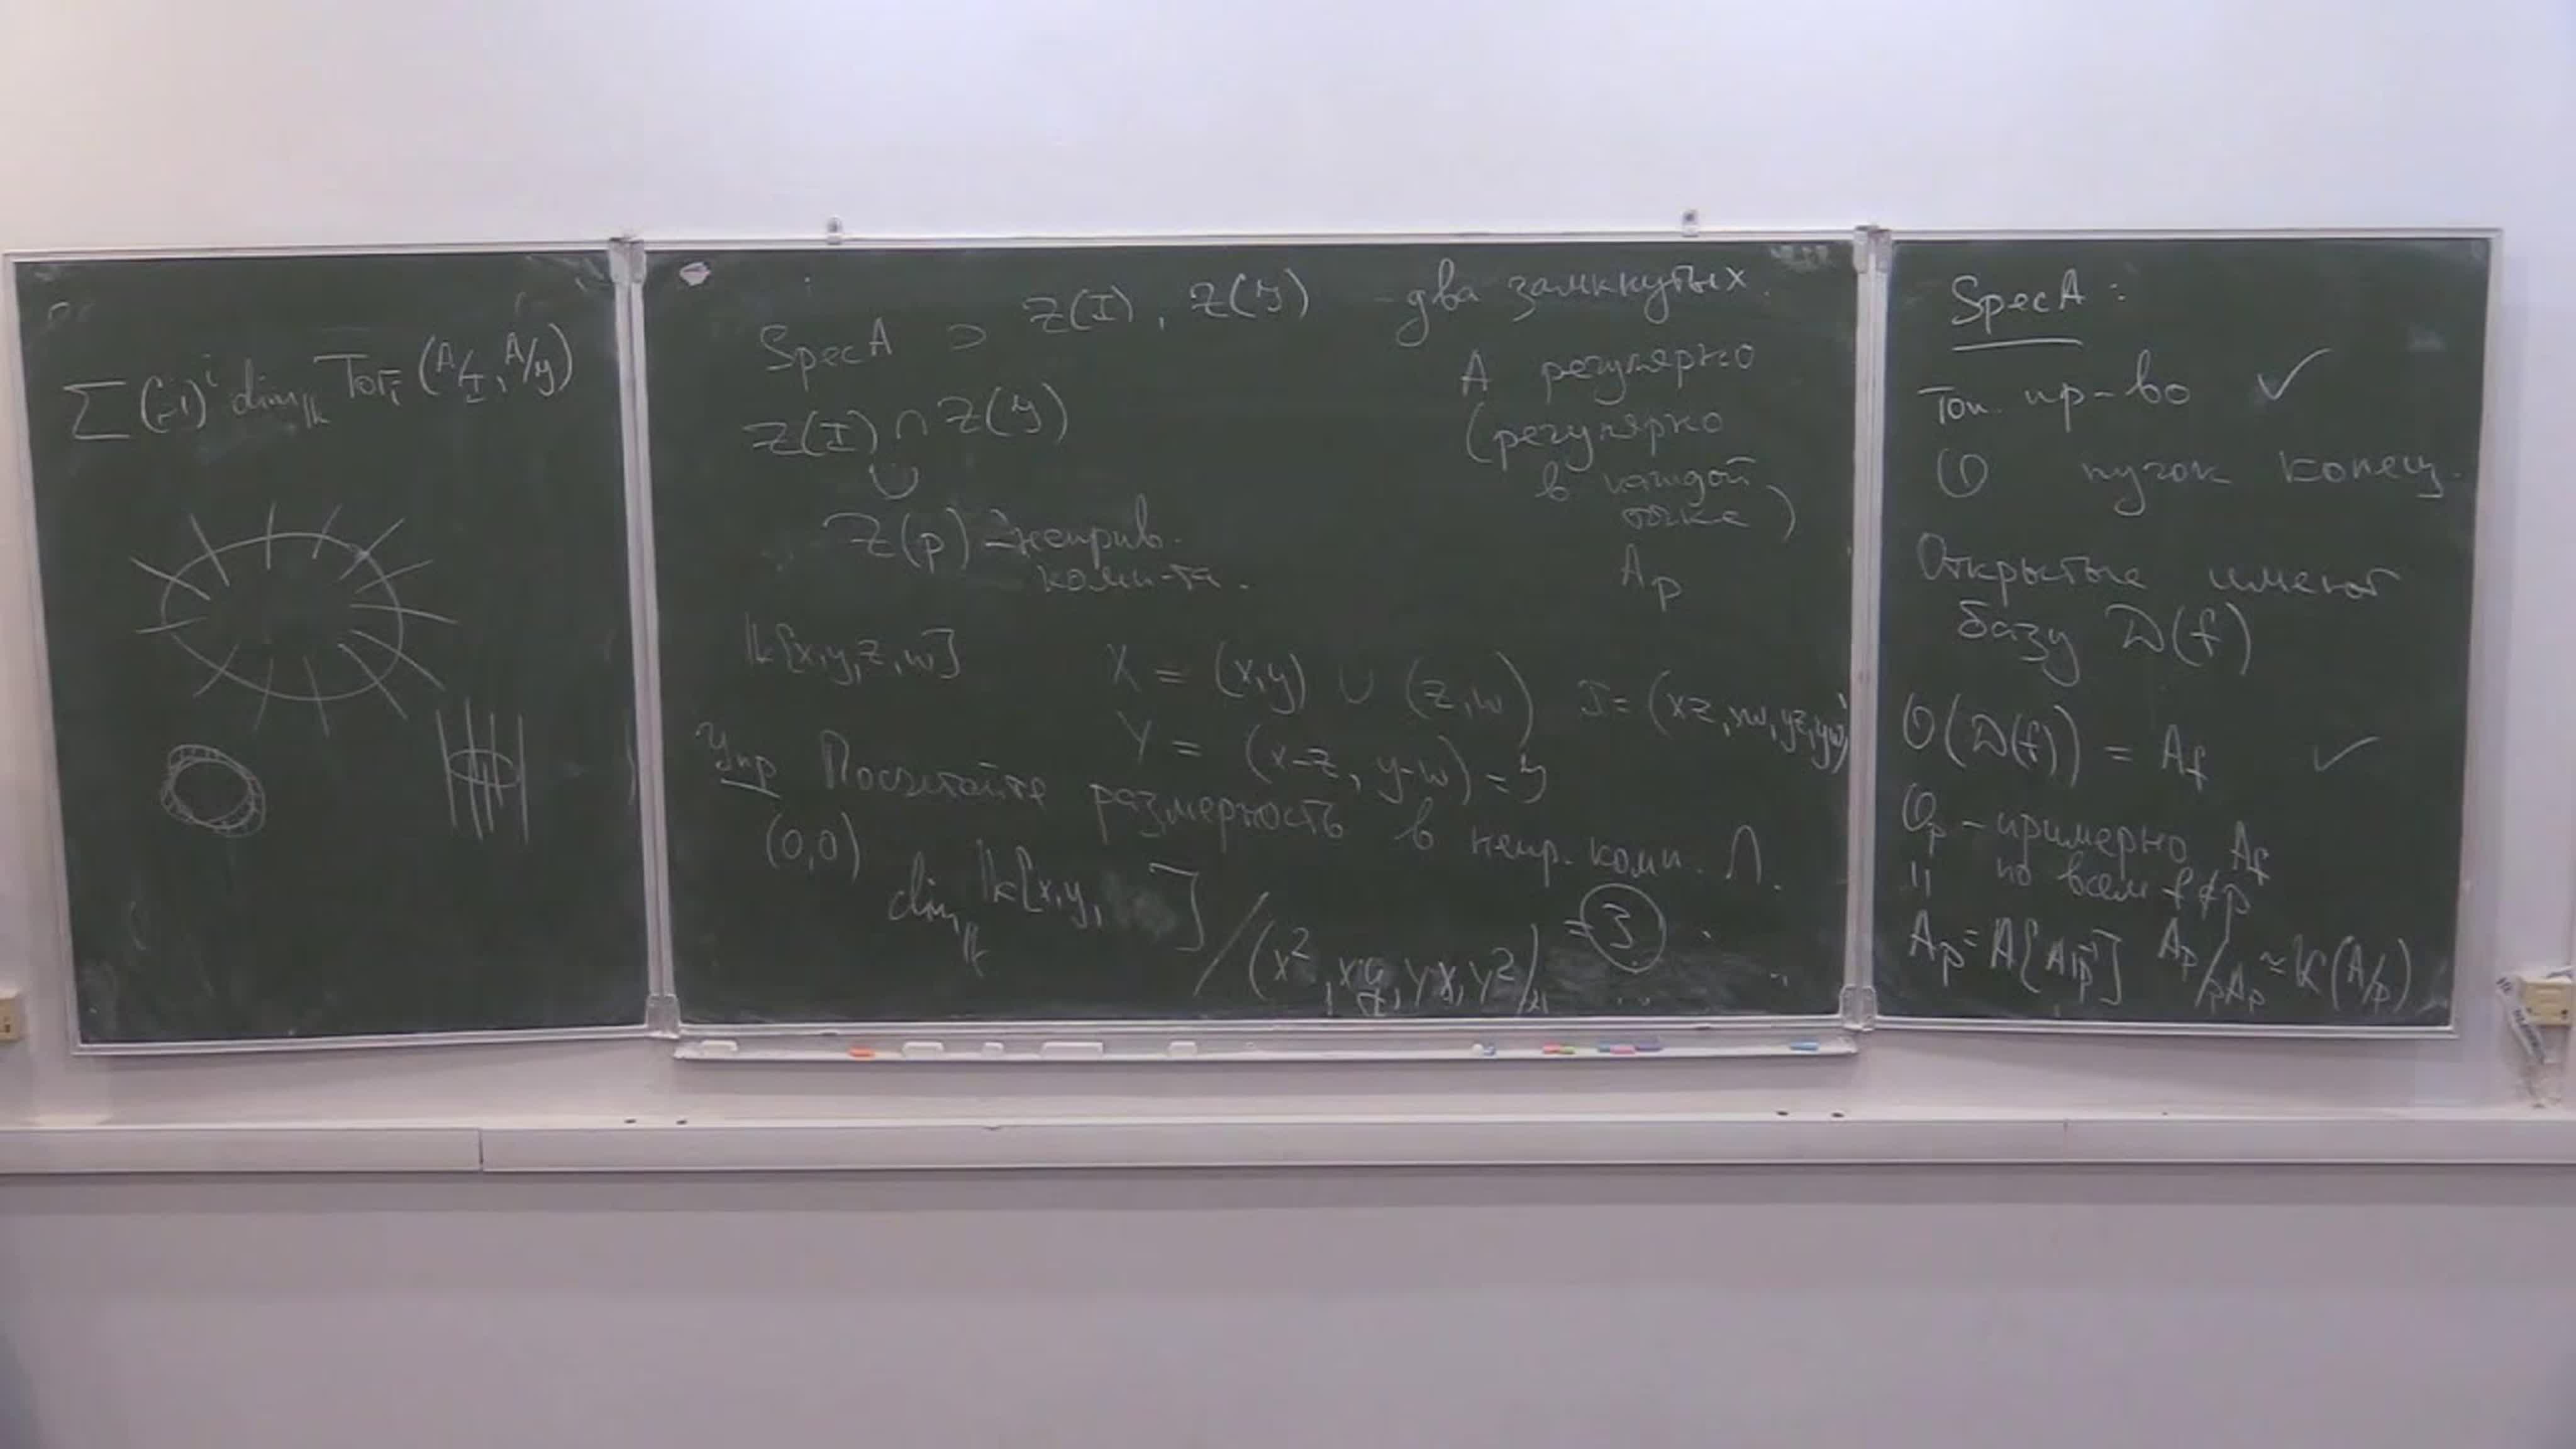 ∑ (-1)^i dim_k Tor_i (A/I, A/J)
Spec A ⊃ Z(I), Z(J) - два замкнутых.
A регулярно
(регулярно
в каждой
точке)
A_p
Z(I) ∩ Z(J)
∪
Z(p) - неприв.
комп-та.
k[x,y,z,w]
X = (x,y) ∪ (z,w) I = (xz, xw, yz, yw)
Y = (x-z, y-w) = J
Упр Посчитайте размерность в непр. комп. ∩.
(0,0)
dim_k k[x,y, ] / (x², xy, yx, y²) = 3.
Spec A:
Топ. пр-во ✓
O пучок колец.
Открытые имеют
базу D(f)
O(D(f)) = A_f ✓
O_p - примерно A_f
|| по всем f ∉ p
A_p = A[A\p⁻¹] A_p/pA_p ≃ K(A/p)